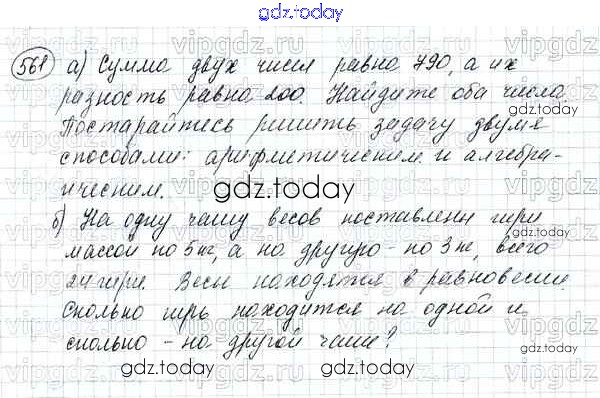 gdz.today
561 а) Сумма двух чисел равна 790, а их
разность равна 200. Найдите оба числа.
Постарайтесь решить задачу двумя
способами: арифметическим и алгебра-
ическим.
gdz.today
б) На одну чашу весов поставлены гири
массой по 5 кг, а на другую - по 3 кг, всего
24 гири. Весы находятся в равновесии.
Сколько гирь находится на одной и
сколько - на другой чаше?
gdz.today
gdz.today
gdz.today
gdz.today
gdz.today